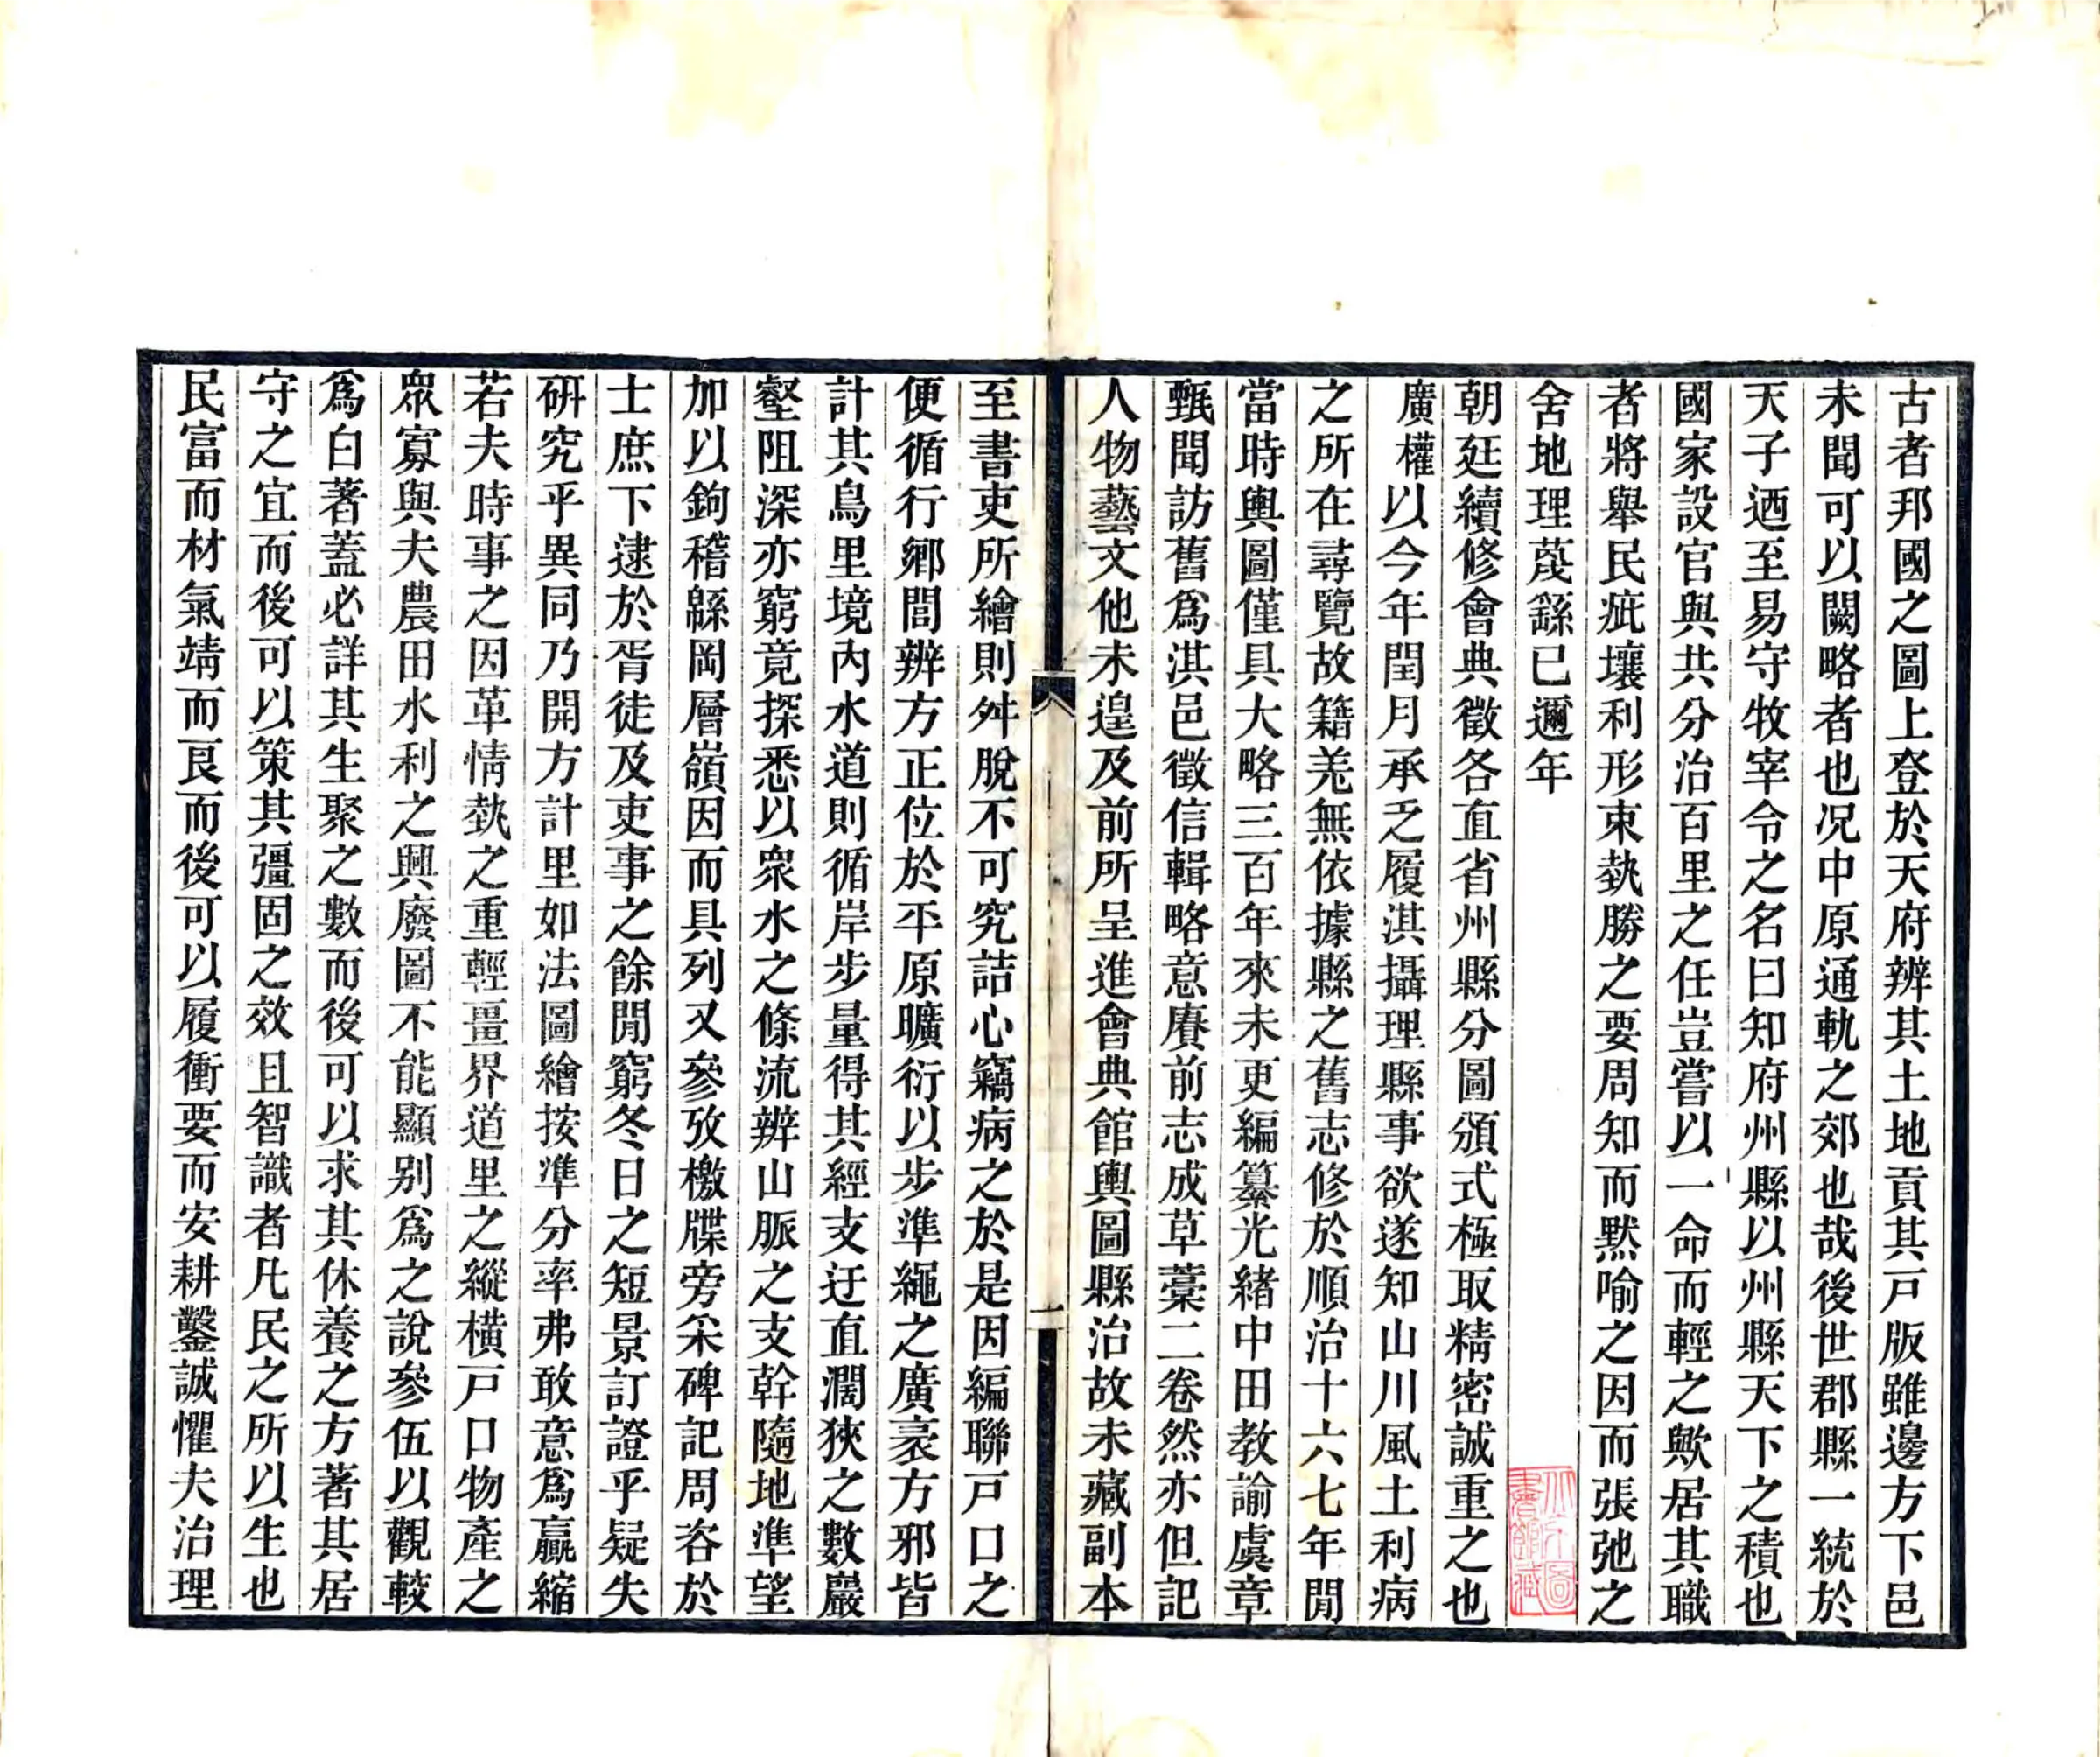 古者邦國之圖上登於天府辨其土地貢其戸版雖邊方下邑
未聞可以闕略者也况中原通軌之郊也哉後世郡縣一統於
天子迺至易守牧宰令之名曰知府州縣以州縣天下之積也
國家設官與共分治百里之任豈嘗以一命而輕之歟居其職
者將舉民疵壤利形束埶勝之要周知而默喻之因而張弛之
舍地理蔑繇已邇年
朝廷續修會典徵各直省州縣分圖頒式極取精密誠重之也
廣權以今年閏月承乏履淇攝理縣事欲遂知山川風土利病
之所在尋覽故籍羌無依據縣之舊志修於順治十六七年閒
當時輿圖僅具大略三百年來未更編纂光緒中田教諭虞章
甄聞訪舊爲淇邑徵信輯略意賡前志成草藁二卷然亦但記
人物藝文他未遑及前所呈進會典館輿圖縣治故未藏副本
至書吏所繪則舛脫不可究詰心竊病之於是因編聯戸口之
便循行鄉閭辨方正位於平原曠衍以步準繩之廣袤方邪皆
計其鳥里境內水道則循岸步量得其經支迂直濶狹之數巖
壑阻深亦窮竟探悉以眾水之條流辨山脈之支幹隨地準望
加以鉤稽緜岡層嶺因而具列又參攷檄牒旁采碑記周咨於
士庶下逮於胥徒及吏事之餘閒窮冬日之短景訂證乎疑失
研究乎異同乃開方計里如法圖繪按準分率弗敢意爲贏縮
若夫時事之因革情埶之重輕畺界道里之縱橫戸口物產之
眾寡與夫農田水利之興廢圖不能顯别爲之說參伍以觀較
爲白著蓋必詳其生聚之數而後可以求其休養之方著其居
守之宜而後可以策其彊固之效且智識者凡民之所以生也
民富而材氣靖而良而後可以履衝要而安耕鑿誠懼夫治理
一